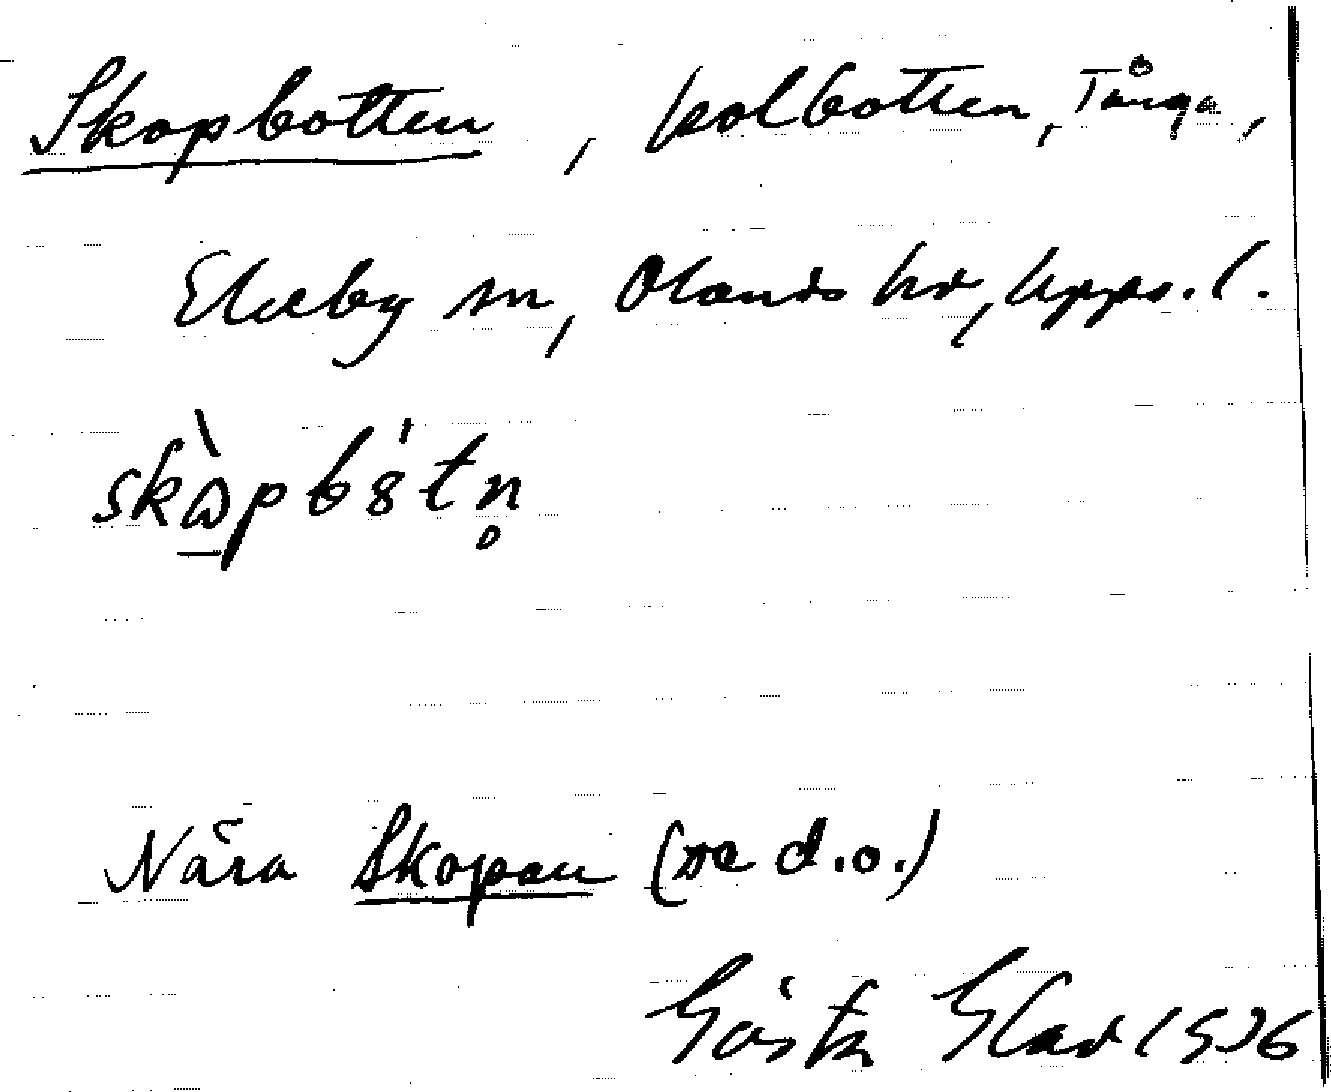 Skopbotten, kolbotten, Tånga,
Ekeby sn, Olands hd, Upps. l.
Nära Skopan (se d.o.)
Gösta Elav 1936